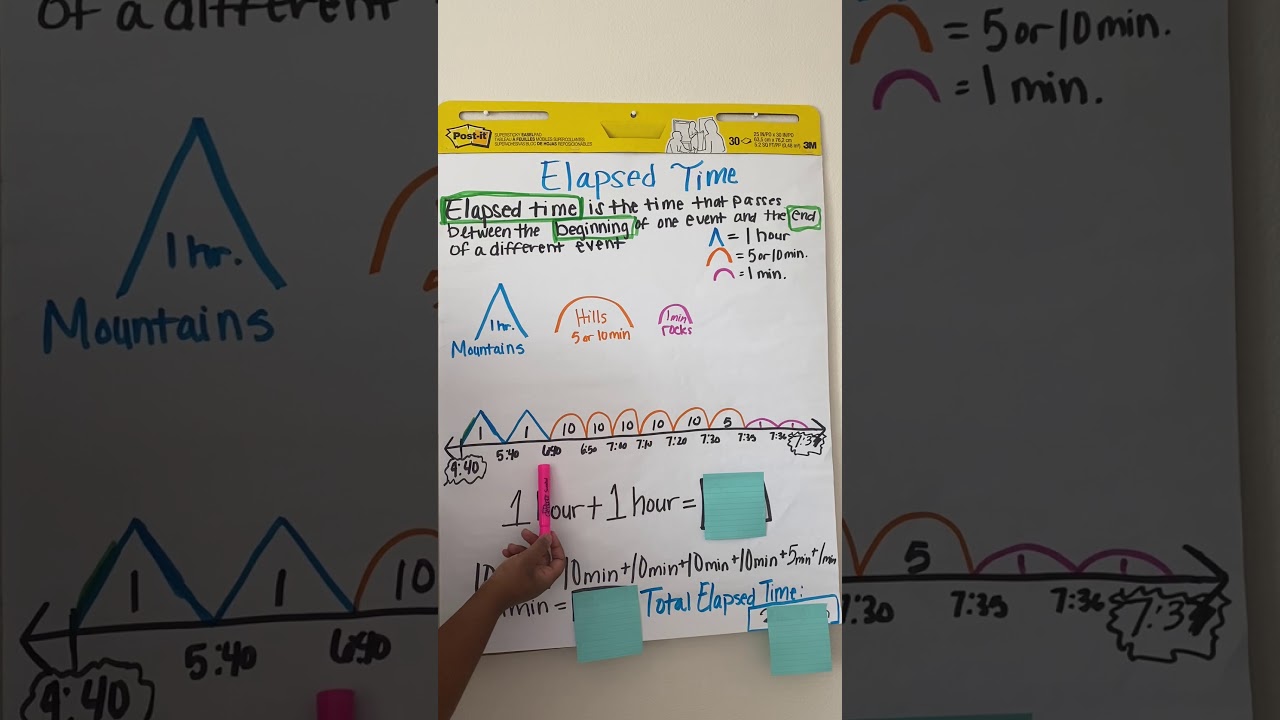 Post-it
SUPERSTICKY EASEL PAD
30
25 IN/PO x 30 IN/PO
63,5 cm x 76,2 cm
3M
Elapsed Time
Elapsed time is the time that passes
between the beginning of one event and the end
of a different event
= 1 hour
= 5 or 10 min.
= 1 min.
1 hr.
Mountains
Hills
5 or 10 min
1 min
rocks
1 1 10 10 10 10 10 5 1 1
4:40 5:40 6:40 6:50 7:00 7:10 7:20 7:30 7:35 7:36 7:37
1 hour + 1 hour =
10 10min + 10min + 10min + 10min + 5min + 1min
min =
Total Elapsed Time:
2
of a different
1 hr.
Mountains
1 1 10
4:40 5:40 6:40
= 5 or 10 min.
= 1 min.
5 1 1
7:30 7:35 7:36 7:37